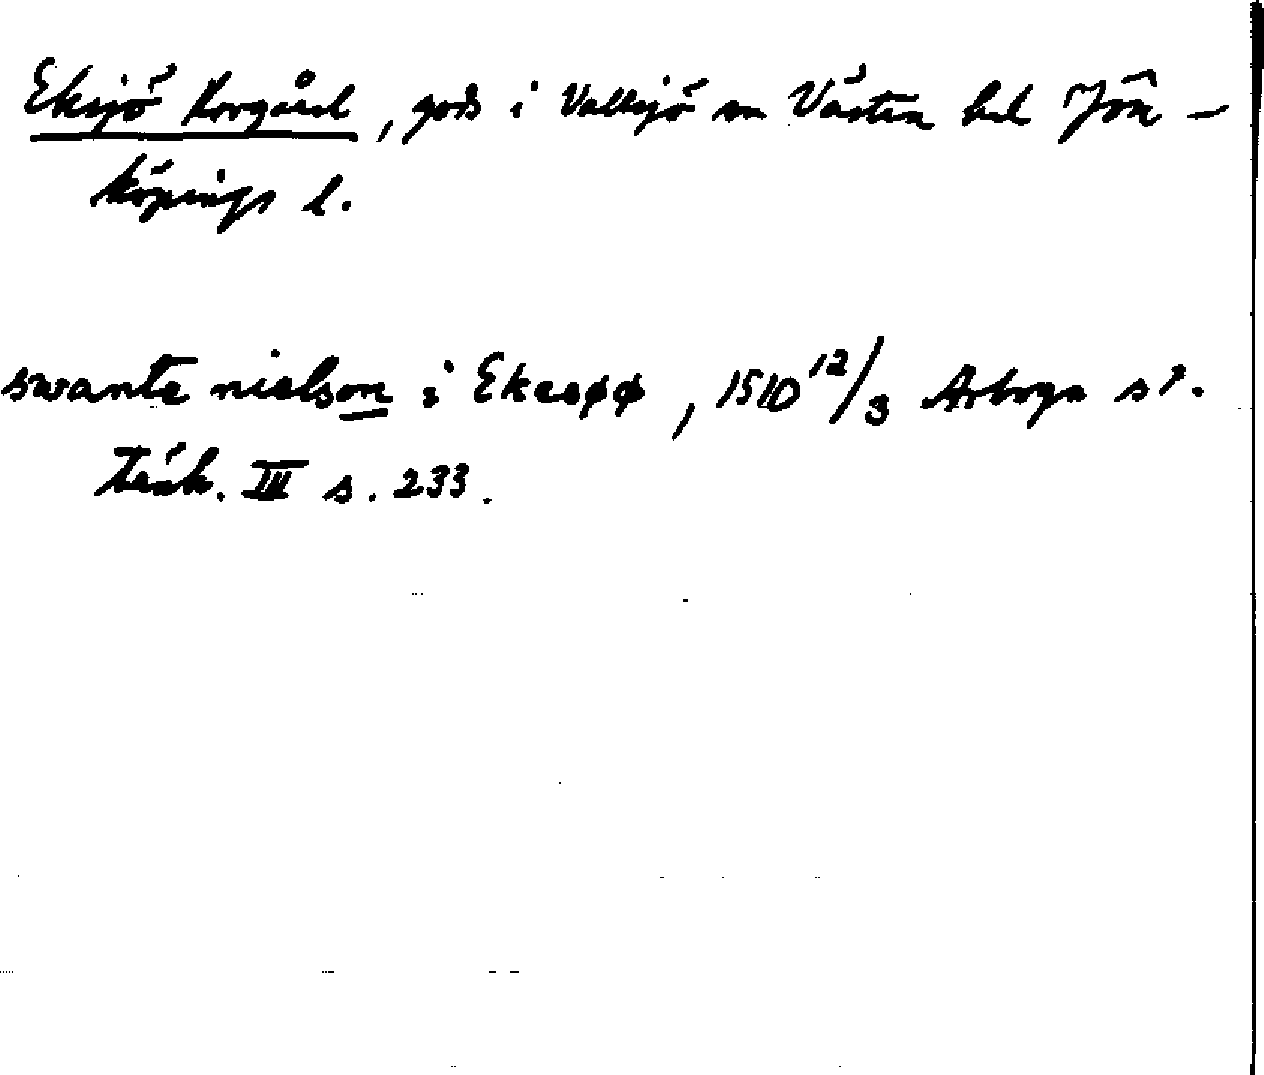 Eksjö Hovgård, gods i Vallsjö sn Västra hd Jön-
köpings l.
swante nielson i Ekesøø, 1510 12/3 Arboga st.
tänk. III s. 233.